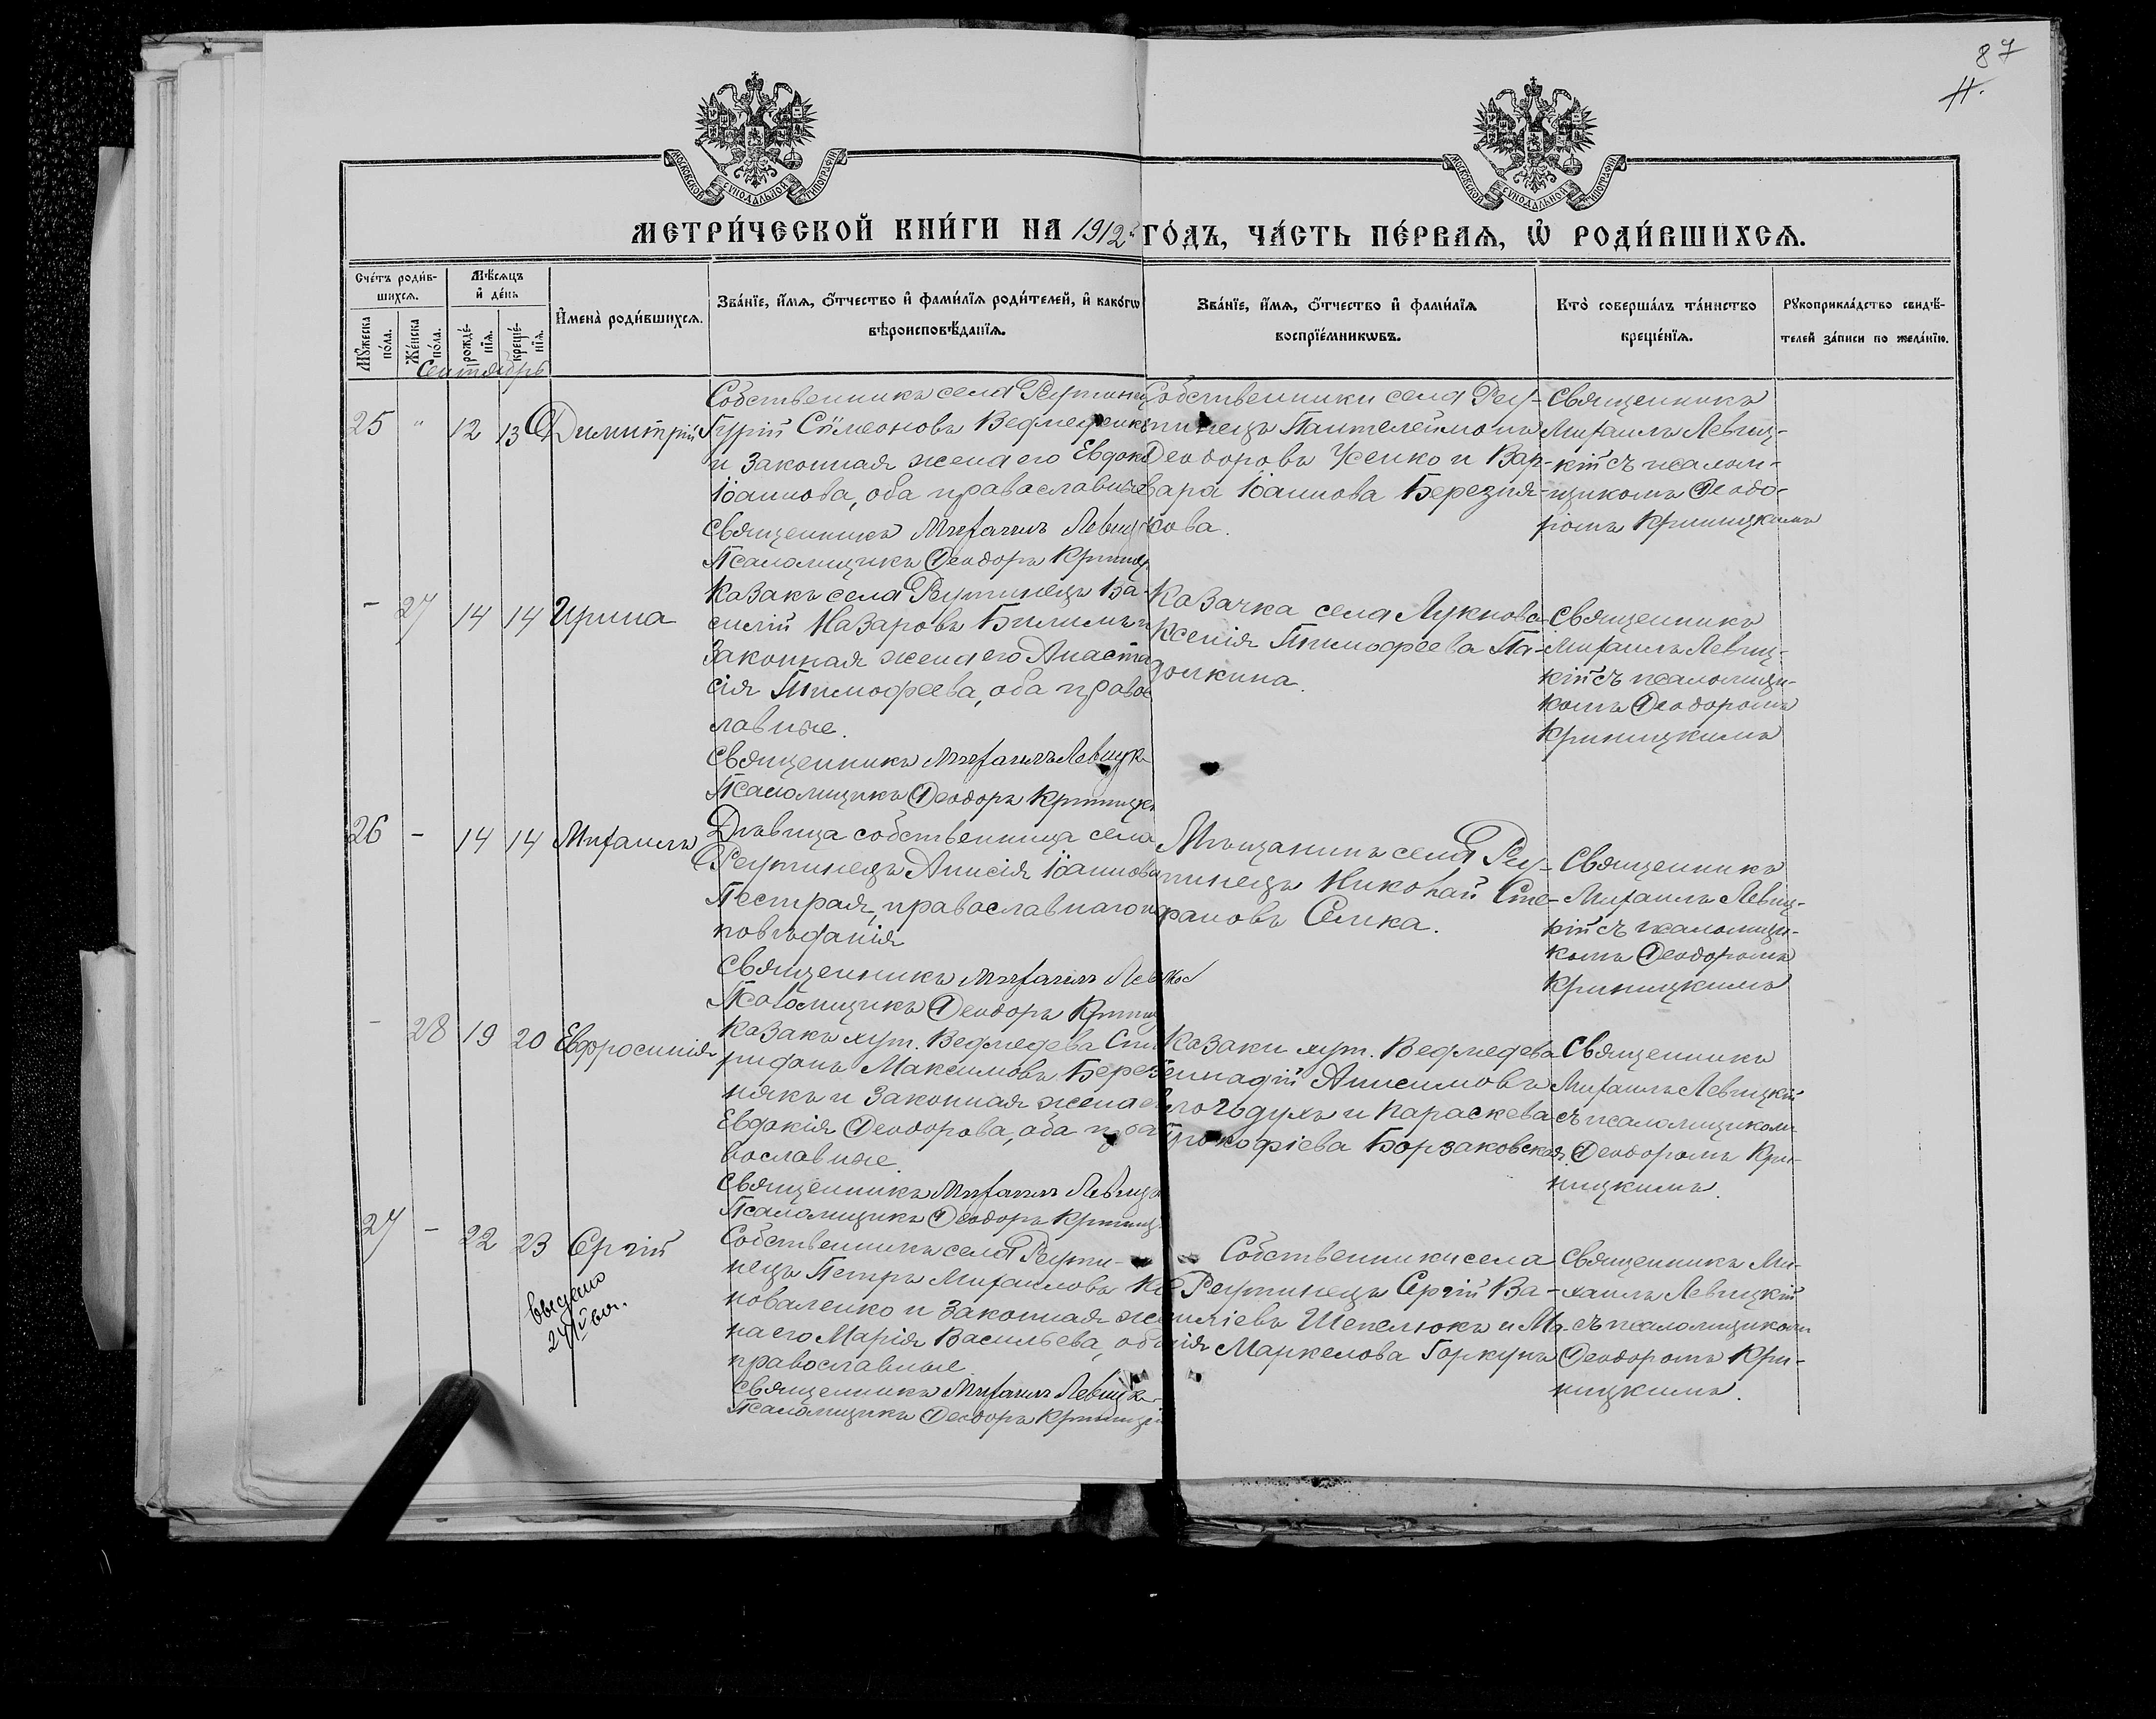 87
Н.
МОСКОВСКОЙ СѴНОДАЛЬНОЙ ТИПОГРАФІИ
МОСКОВСКОЙ СѴНОДАЛЬНОЙ ТИПОГРАФІИ
МЕТРИ́ЧЕСКОЙ КНИ́ГИ НА 1912 г. ГО́ДЪ, ЧА́СТЬ ПЕ́РВАЯ, Ѡ РОДИ́ВШИХСЯ.
Сче́тъ роди́в-
шихся.
Мѣ́сяцъ
и де́нь
И́мена роди́вшихся.
Зва́нїе, и́мя, о́тчество и фами́лїя роди́телей, и како́гѡ
вѣроисповѣ́данїя.
Зва́нїе, и́мя, о́тчество и фами́лїя
воспрїе́мникѡвъ.
Кто̀ соверша́лъ та́инство
креще́нїя.
Рꙋкоприкла́дство свидѣ́-
телей за́писи по жела́нїю.
Мꙋ́жеска
по́ла.
Же́нска
по́ла.
рожде́-
нїя.
креще́-
нїя.
Сентябрь
25 " 12 13 Димитрій
Собственникъ села Реутинец
Гурій Сѵмеоновъ Ведмеденк
и законная жена его Евдокі
Іоаннова, оба православные
Священникъ Михаилъ Левиц
Псаломщикъ Ѳеодоръ Криниц
Собственники села Реу-
тинецъ Пантелеймонъ
Ѳеодоровъ Усенко и Вар-
вара Іоаннова Березня-
кова.
Священникъ
Михаилъ Левиц-
кій съ псалом-
щикомъ Ѳеодо-
ромъ Криницкимъ
- 27 14 14 Ирина
Казакъ села Реутинецъ Ва-
силій Назаровъ Билимъ и
законная жена его Анаста
сія Тимофеева, оба правос
лавные.
Священникъ Михаилъ Левицк
Псаломщикъ Ѳеодоръ Криницк
Казачка села Лукнова
Ксенія Тимофеева Па-
золкина.
Священникъ
Михаилъ Левиц-
кій съ псаломщи-
комъ Ѳеодоромъ
Криницкимъ
26 - 14 14 Михаилъ
Дѣвица собственница села
Реутинецъ Анисія Іоаннова
Пестрая, православнаго ис
повѣданія
Священникъ Михаилъ Лев
Псаломщикъ Ѳеодоръ Криниц
Мѣщанинъ села Реу-
тинецъ Николай Сте-
фановъ Семка.
Священникъ
Михаилъ Левиц-
кій съ псаломщи-
комъ Ѳеодоромъ
Криницкимъ
- 28 19 20 Евфросинія
Казакъ хут. Ведмедева Спи
ридонъ Максимовъ Берез
някъ и законная жена е
Евдокія Ѳеодорова, оба пра
вославные.
Священникъ Михаилъ Левицк
Псаломщикъ Ѳеодоръ Криниц
Казаки хут. Ведмедева
Геннадій Анисимовъ
Параскева
Прокофіева Борзаковская.
Священникъ
Михаилъ Левицкій
съ псаломщикомъ
Ѳеодоромъ Кри-
ницкимъ.
27 - 22 23 Сергій
введено
24/IV 60г.
Собственникъ села Реути-
нецъ Петръ Михаиловъ Ко
новаленко и законная же
на его Марія Васильева, оба
православные
Священникъ Михаилъ Левицк
Псаломщикъ Ѳеодоръ Криницкій
Собственники села
Реутинецъ Сергій Ва-
силіевъ Шепелюкъ и Ма-
рія Маркелова Горкунъ
Священникъ Ми-
хаилъ Левицкій
съ псаломщикомъ
Ѳеодоромъ Кри-
ницкимъ.